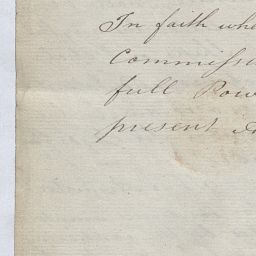 In faith whe
Commiss
full Pow
present A